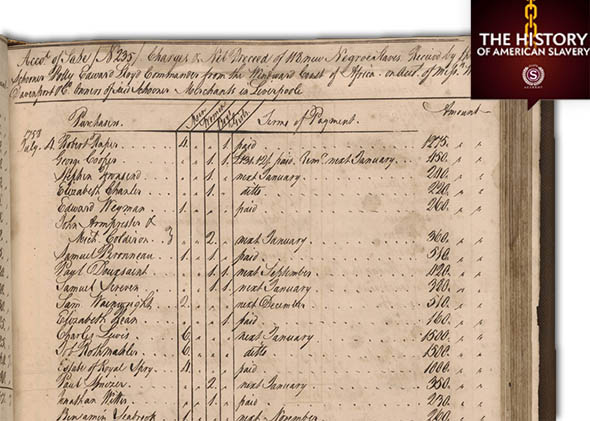 THE HISTORY
OF AMERICAN SLAVERY
S
ACADEMY
Accot of Sales /No 235/ Charges & Net Proceed of 113 new Negroe Slaves Receiv'd by the
Schooner Holly Edward Lloyd Commander from the Windward Coast of Africa on Accot of Messrs
Davenport & Co Owners of said Schooner Merchants in Liverpoole
Purchasers. Men Women Boys Girls Terms of Payment. Amount
1753
July 4. Robert Raper 4 " " 1 paid 1275
George Cooper " " 1 1 paid next January 450
Stephen 1 next January 200
Elizabeth 1 ditto 220
Edward Weyman 1 " " " paid 260
John Armprester &
Mich. Colderon " 2 " " next January 360
Samuel Peronneau 1 " 1 1 paid 510
Paul Douxsaint " " 1 1 next September 420
Samuel 1 1 next January 320
Sam Wainwright 2 " " " next December 510
Elizabeth Bean 1 paid 160
Charles Lewis 6 " " " next January 1500
Job Rothmahler 6 " " " ditto 1500
Estate of Royal Spry 4 " " " paid 1000
Paul " 2 " " next January 350
Jonathan 1 paid 230
Benjamin Seabrook 1 next November 260